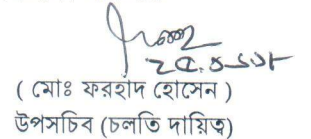 ( মোঃ ফরহাদ হোসেন )
উপসচিব (চলতি দায়িত্ব)